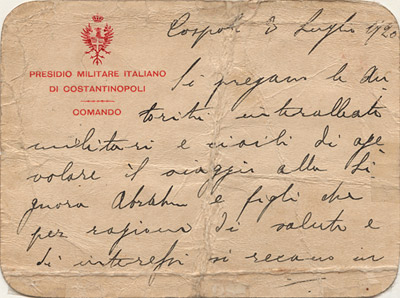 Cospoli 3 Luglio 1920
PRESIDIO MILITARE ITALIANO
DI COSTANTINOPOLI
COMANDO
Si pregano le Au
torità interalleate
militari e civili di age
volare il viaggio alla Si
gnora Abrahm e figli che
per ragioni di salute e
di interessi si recano in